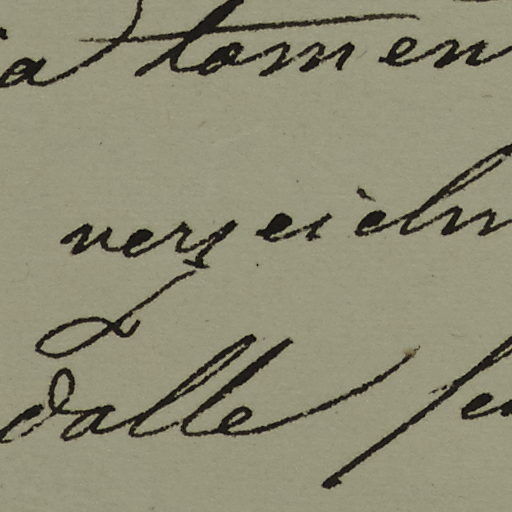 ia tomen
verzeichn
dalle se